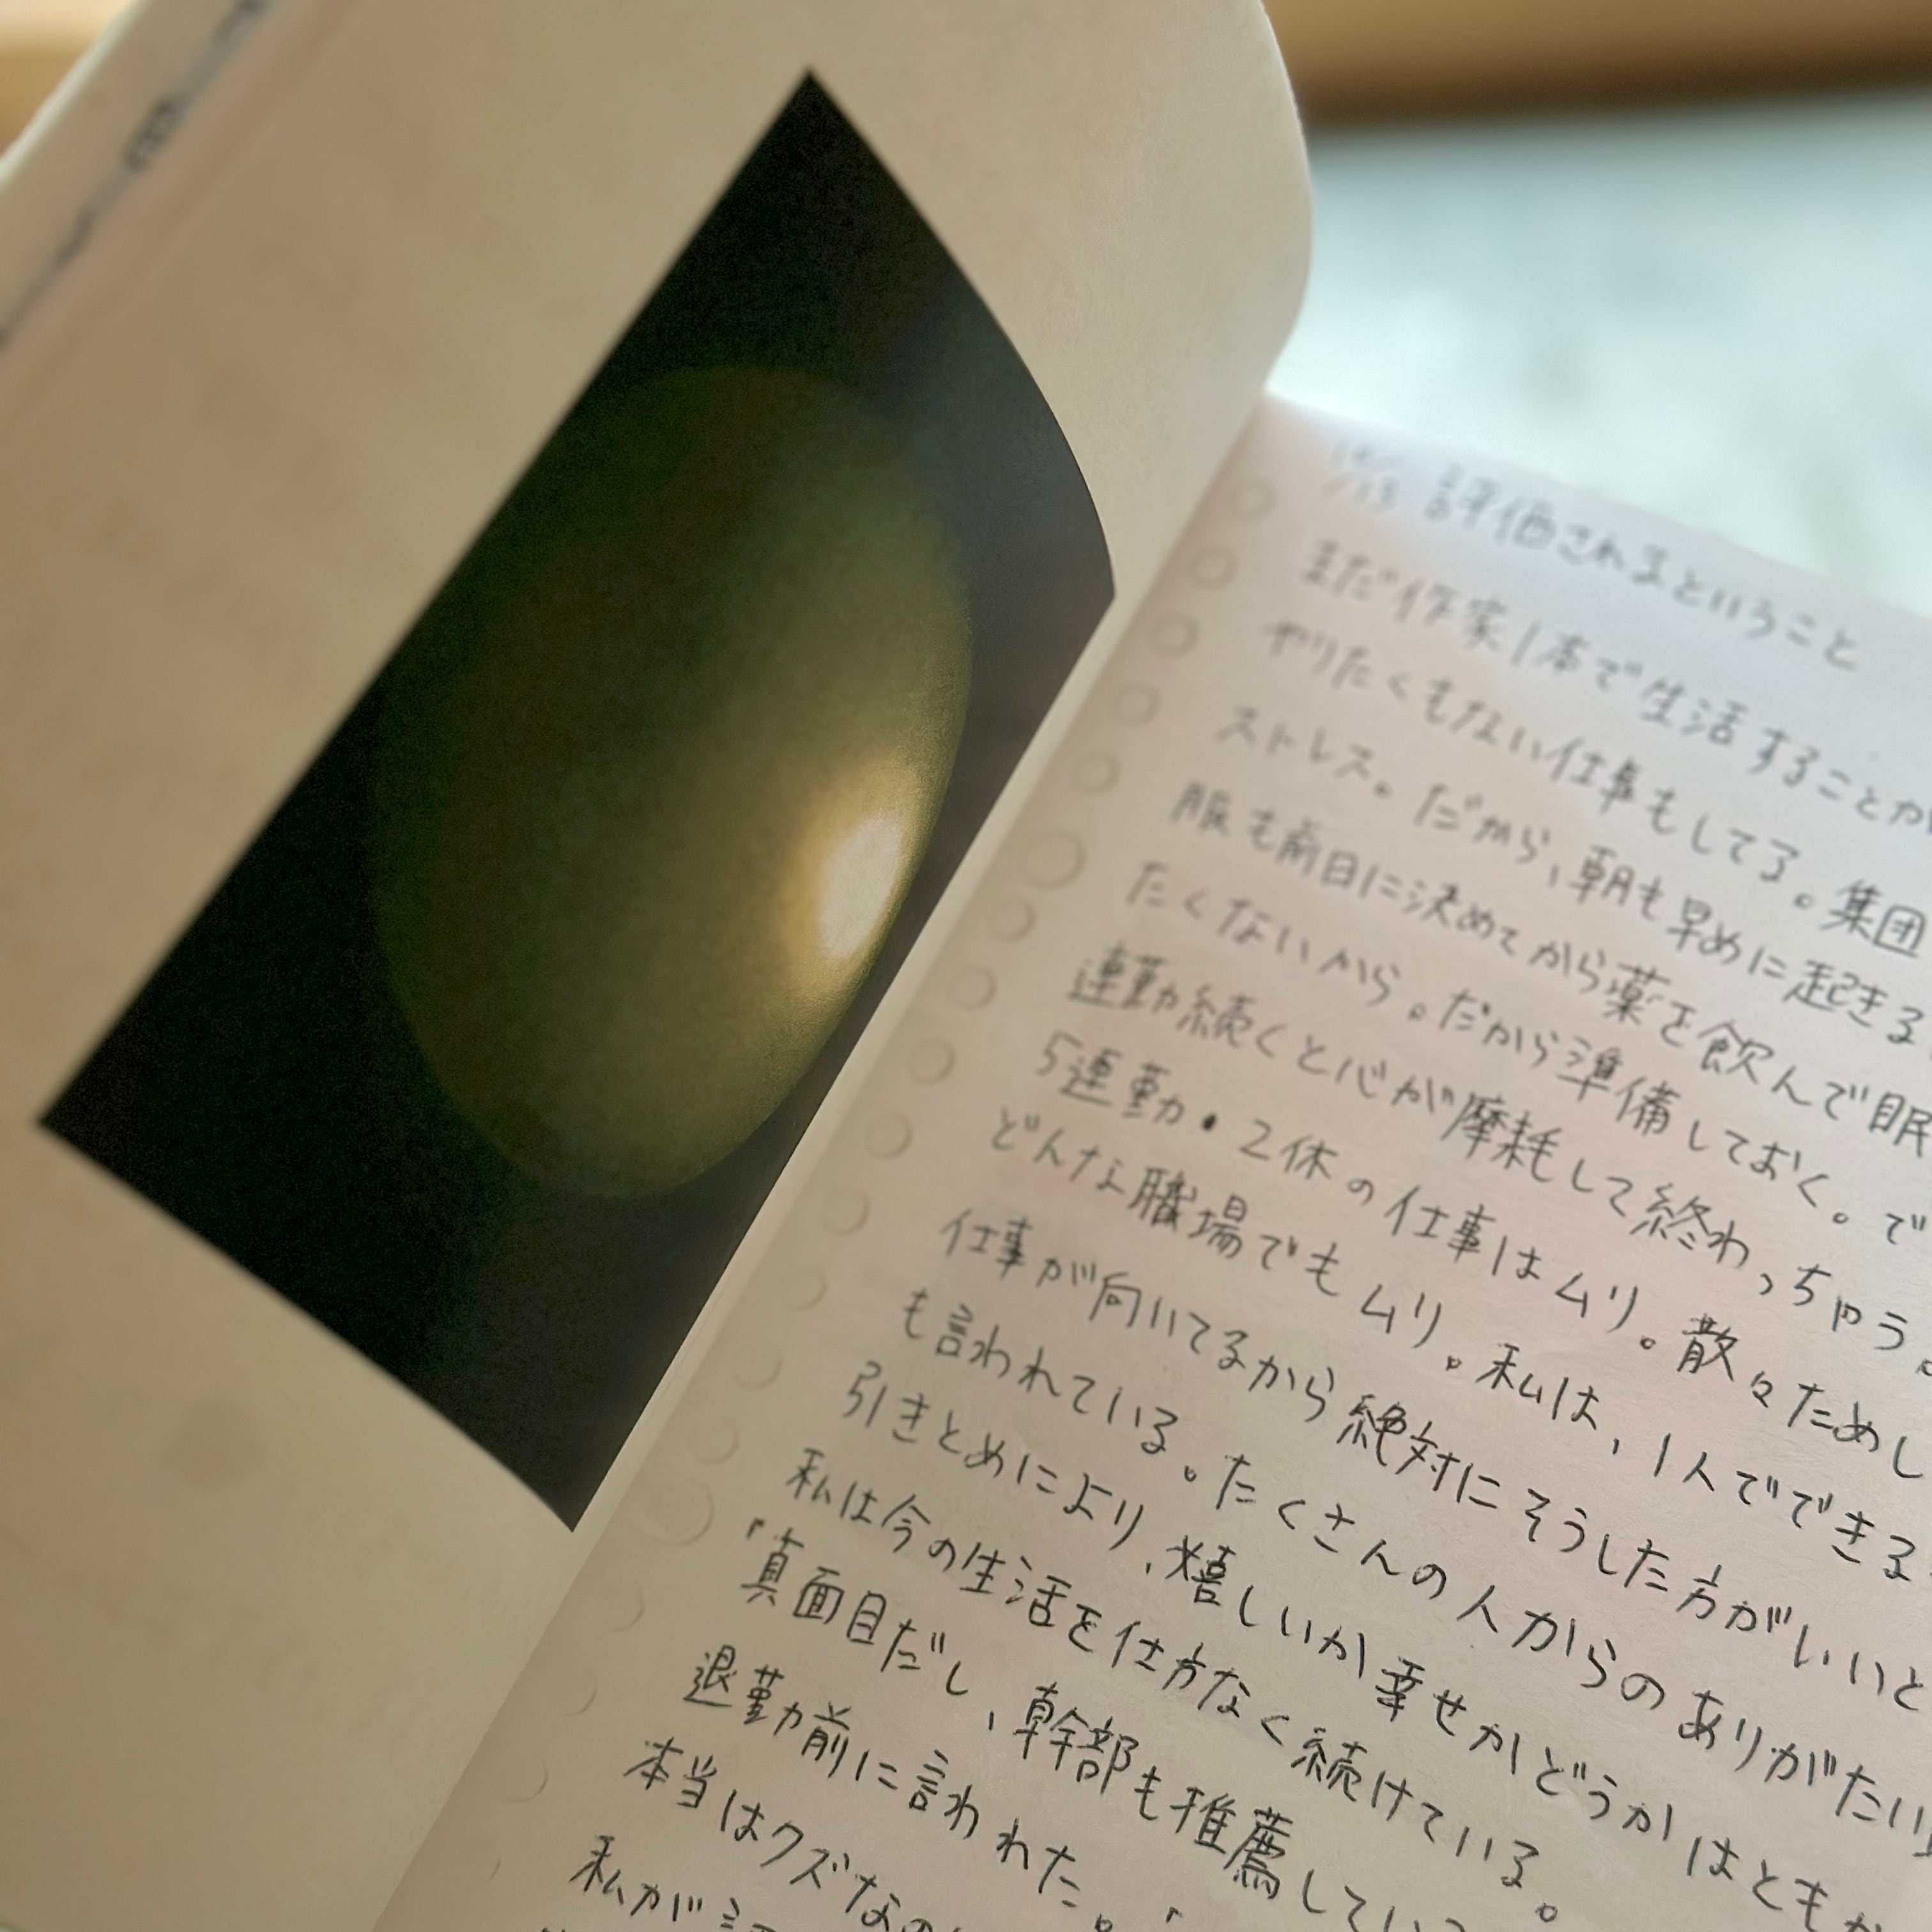 評価されるということ
まだ作家1本で生活することが
やりたくもない仕事もしてる。集団
ストレス。だから、朝も早めに起きる
服も前日に決めてから薬を飲んで眠
たくないから。だから準備しておく。で
連勤続くと心が摩耗して終わっちゃう。
5連勤・2休の仕事はムリ。散々ためし
どんな職場でもムリ。私は、1人でできる
仕事が向いてるから絶対にそうした方がいいと
も言われている。たくさんの人からのありがたい
引きとめにより、嬉しいか幸せかどうかはともか
私は今の生活を仕方なく続けている。
「真面目だし、幹部も推薦してい
退勤前に言われた。「
本当はクズなの
私が